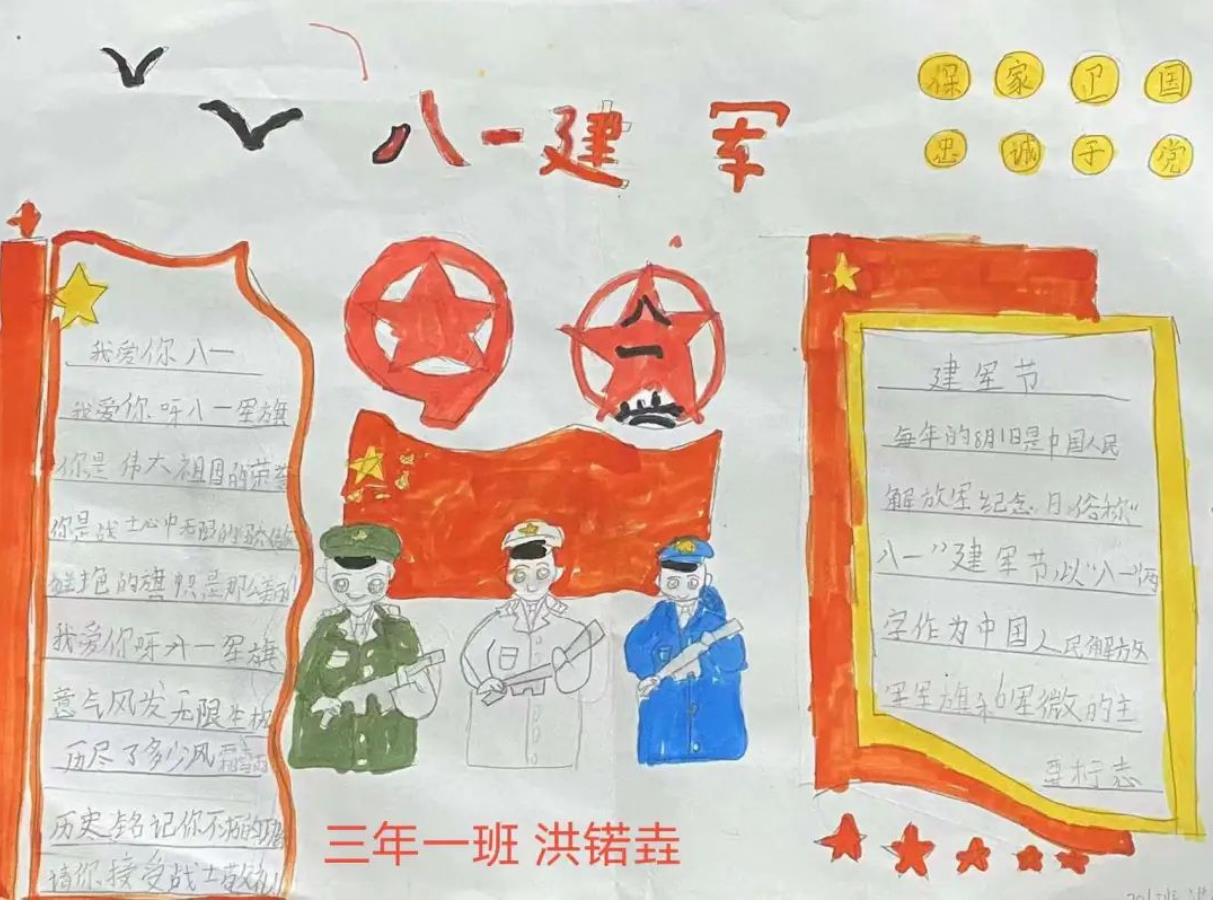 八一建军
保家卫国
忠诚于党
八一
我爱你八一
我爱你呀八一军旗
你是伟大祖国的荣誉
你是战士心中无限的骄傲
鲜艳的旗帜是那么美丽
我爱你呀八一军旗
意气风发无限生机
历尽了多少风霜雪雨
历史铭记你不朽的功
请你接受战士敬礼
建军节
每年的8月1日是中国人民
解放军纪念日，俗称“
八一”建军节，以“八一”两
字作为中国人民解放
军军旗和军微的主
要标志
三年一班 洪锘垚